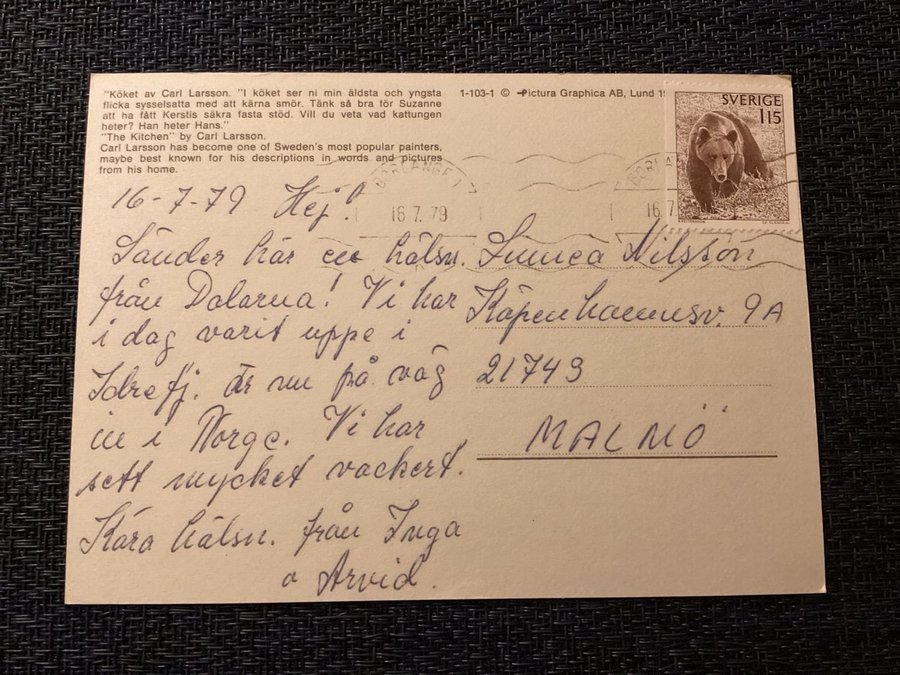 "Köket av Carl Larsson. "I köket ser ni min äldsta och yngsta
flicka sysselsatta med att kärna smör. Tänk så bra för Suzanne
att ha fått Kerstis säkra fasta stöd. Vill du veta vad kattungen
heter? Han heter Hans."
"The Kitchen" by Carl Larsson.
Carl Larsson has become one of Sweden's most popular painters,
maybe best known for his descriptions in words and pictures
from his home.
1-103-1 © Pictura Graphica AB, Lund
SVERIGE
115
BORLÄNGE 1
16 7. 79
16 7
16-7-79 Hej!
Sänder här en hälsn.
från Dalarna! Vi har
i dag varit uppe i
Idrefj. är nu på väg
in i Norge. Vi har
sett mycket vackert.
Kära hälsn. från Inga
o Arvid.
Linnea Nilsson
Köpenhamnsv. 9A
21743
MALMÖ